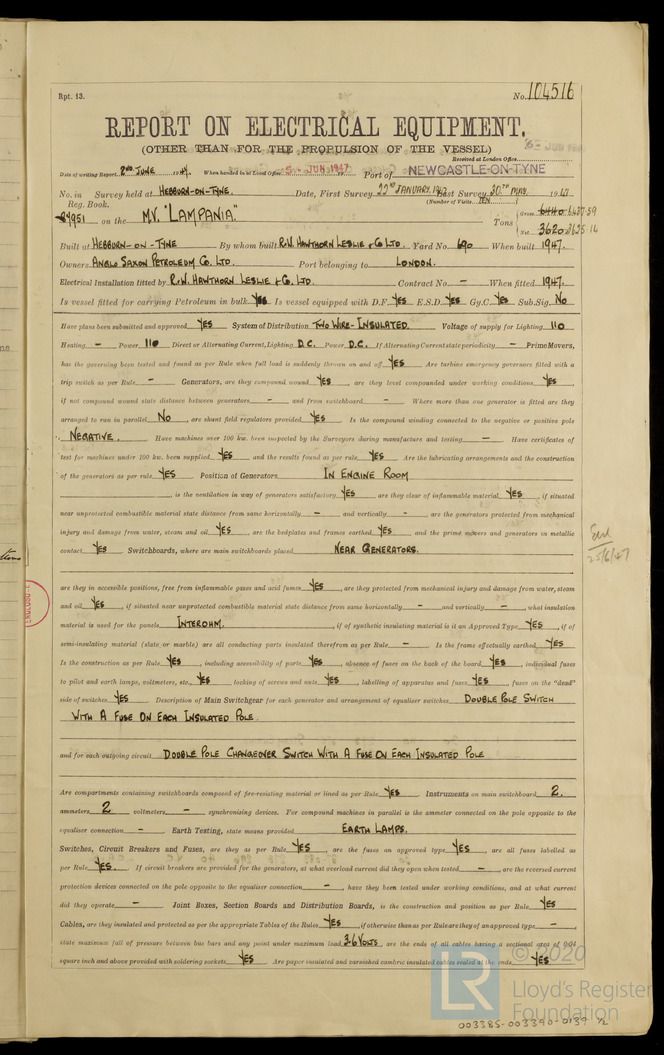 Rpt. 13.
No. 104516
REPORT ON ELECTRICAL EQUIPMENT.
(OTHER THAN FOR THE PROPULSION OF THE VESSEL)
Received at London Office
Date of writing Report 2ND JUNE 1947. When handed in at Local Office 5 - JUN 1947 Port of NEWCASTLE-ON-TYNE
No. in Survey held at HEBBURN-ON-TYNE. Date, First Survey 22ND JANUARY 1947 Last Survey 30TH MAY 1947
Reg. Book. (Number of Visits TEN)
on the M.V. "LAMPANIA" Tons Gross 6440 6437.59
Net 3620
Built at HEBBURN-ON-TYNE By whom built R.W. HAWTHORN LESLIE & CO. LTD. Yard No. 690 When built 1947.
Owners ANGLO SAXON PETROLEUM CO. LTD. Port belonging to LONDON.
Electrical Installation fitted by R.W. HAWTHORN LESLIE & CO. LTD. Contract No. - When fitted 1947.
Is vessel fitted for carrying Petroleum in bulk YES Is vessel equipped with D.F. YES E.S.D. YES Gy.C. YES Sub.Sig. NO
Have plans been submitted and approved YES System of Distribution TWO WIRE-INSULATED Voltage of supply for Lighting 110
Heating - Power 110 Direct or Alternating Current, Lighting D.C. Power D.C. If Alternating Current state periodicity - Prime Movers,
has the governing been tested and found as per Rule when full load is suddenly thrown on and off YES Are turbine emergency governors fitted with a
trip switch as per Rule - Generators, are they compound wound YES, are they level compounded under working conditions YES,
if not compound wound state distance between generators - and from switchboard - Where more than one generator is fitted are they
arranged to run in parallel NO, are shunt field regulators provided YES Is the compound winding connected to the negative or positive pole
NEGATIVE. Have machines over 100 kw. been inspected by the Surveyors during manufacture and testing - Have certificates of
test for machines under 100 kw. been supplied YES and the results found as per rule YES Are the lubricating arrangements and the construction
of the generators as per rule YES Position of Generators IN ENGINE ROOM
, is the ventilation in way of generators satisfactory YES are they clear of inflammable material YES, if situated
near unprotected combustible material state distance from same horizontally - and vertically - are the generators protected from mechanical
injury and damage from water, steam and oil YES, are the bedplates and frames earthed YES and the prime movers and generators in metallic
contact YES Switchboards, where are main switchboards placed NEAR GENERATORS.
are they in accessible positions, free from inflammable gases and acid fumes YES, are they protected from mechanical injury and damage from water, steam
and oil YES, if situated near unprotected combustible material state distance from same horizontally - and vertically -, what insulation
material is used for the panels INTEROHM, if of synthetic insulating material is it an Approved Type YES, if of
semi-insulating material (slate or marble) are all conducting parts insulated therefrom as per Rule - Is the frame effectually earthed YES
Is the construction as per Rule YES, including accessibility of parts YES, absence of fuses on the back of the board YES, individual fuses
to pilot and earth lamps, voltmeters, etc. YES locking of screws and nuts YES, labelling of apparatus and fuses YES, fuses on the "dead"
side of switches YES Description of Main Switchgear for each generator and arrangement of equaliser switches DOUBLE POLE SWITCH
WITH A FUSE ON EACH INSULATED POLE.
and for each outgoing circuit DOUBLE POLE CHANGEOVER SWITCH WITH A FUSE ON EACH INSULATED POLE
Are compartments containing switchboards composed of fire-resisting material or lined as per Rule YES Instruments on main switchboard 2.
ammeters 2 voltmeters - synchronising devices. For compound machines in parallel is the ammeter connected on the pole opposite to the
equaliser connection - Earth Testing, state means provided EARTH LAMPS.
Switches, Circuit Breakers and Fuses, are they as per Rule YES, are the fuses an approved type YES, are all fuses labelled as
per Rule YES. If circuit breakers are provided for the generators, at what overload current did they open when tested - are the reversed current
protection devices connected on the pole opposite to the equaliser connection -, have they been tested under working conditions, and at what current
did they operate - Joint Boxes, Section Boards and Distribution Boards, is the construction and position as per Rule YES
Cables, are they insulated and protected as per the appropriate Tables of the Rules YES, if otherwise than as per Rule are they of an approved type -
state maximum fall of pressure between bus bars and any point under maximum load 3.6 VOLTS, are the ends of all cables having a sectional area of 0.04
square inch and above provided with soldering sockets YES Are paper insulated and varnished cambric insulated cables sealed at the ends YES
25/6/47
© 2020
LR
Lloyd's Register
Foundation
003385-003390-0139 1/2